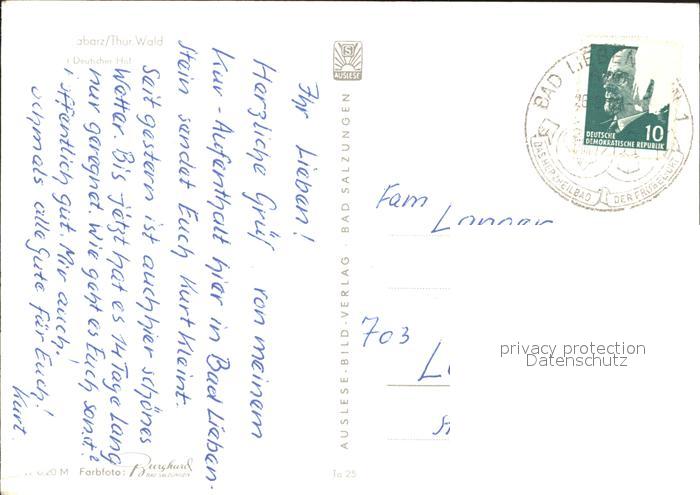 abarz/Thür Wald
Deutscher Hof
Ihr Lieben!
Herzliche Grüß von meinem
Kur-Aufenthalt hier in Bad Lieben-
stein sendet Euch Kurt Kleint.
Seit gestern ist auch hier schönes
Wetter. Bis jetzt hat es 14 Tage lang
nur geregnet. Wie geht es Euch sonst?
öffentlich gut. Mir auch!
ochmals alle Gute für Euch!
Kurt.
0.20 M Farbfoto: Burghard
BAD SALZUNGEN
AUSLESE
AUSLESE-BILD-VERLAG · BAD SALZUNGEN
To 25
BAD LIEBEN
1
DAS HERZHEILBAD DER FRÜHLINGS
10
DEUTSCHE
DEMOKRATISCHE REPUBLIK
Fam
Langer
703
L
privacy protection
Datenschutz